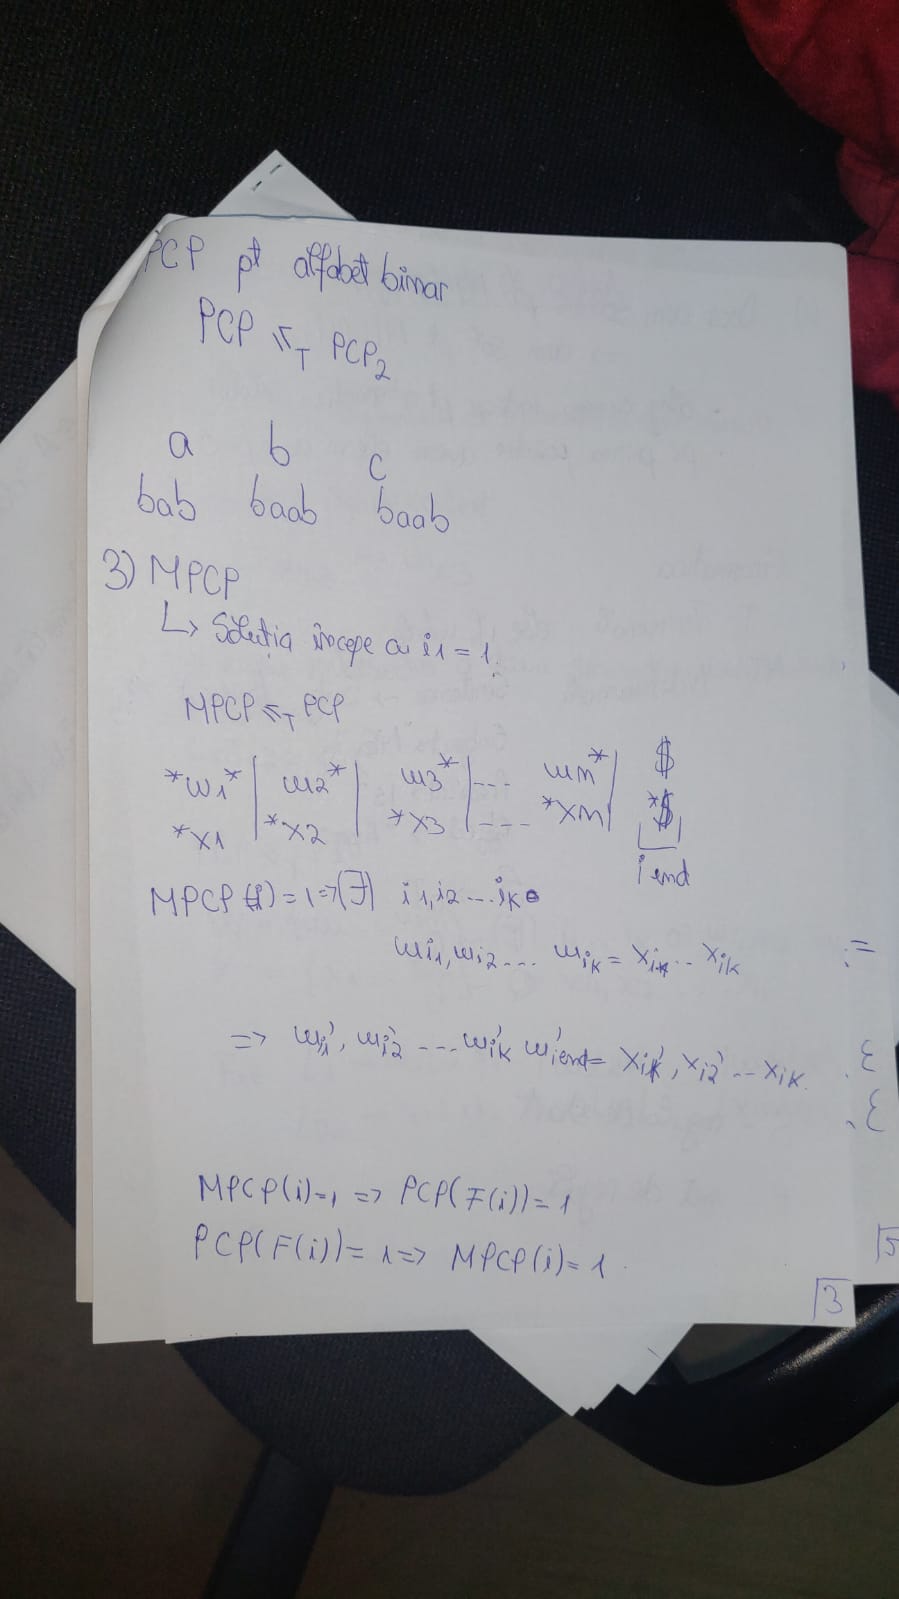 PCP pt alfabet binar
PCP ≤T PCP2
a b c
bab baab baab
3) MPCP
↳ Soluția începe cu i1 = 1.
MPCP ≤T PCP
*w1* | w2* | w3* | --- wn* | $
*x1 | *x2 | *x3 | --- *xn | *$
iend
MPCP(i) = 1 => (∃) i1, i2 ... ik
wi1, wi2 ... wik = xi1 ... xik
=> wi1', wi2' --- wik' w'iend = xi1', xi2' -- xik.
MPCP(i)=1 => PCP(F(i))=1
PCP(F(i))=1 => MPCP(i)=1.
3
5